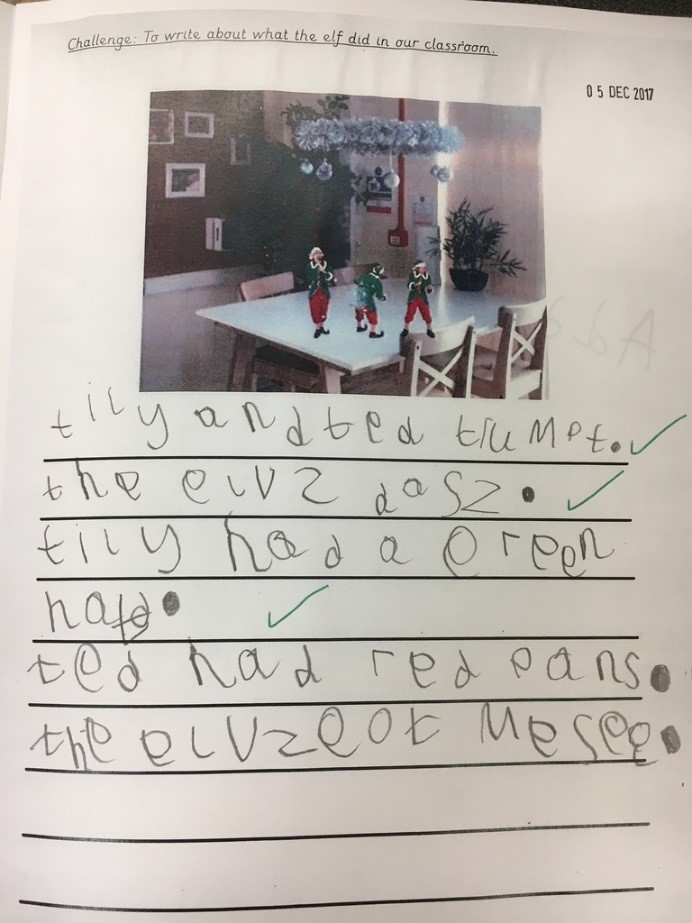 Challenge: To write about what the elf did in our classroom.
05 DEC 2017
tily and ted trumpt.
the elvz dasz.
tily had a green
hat.
ted had red pans.
the elvz got mesee.